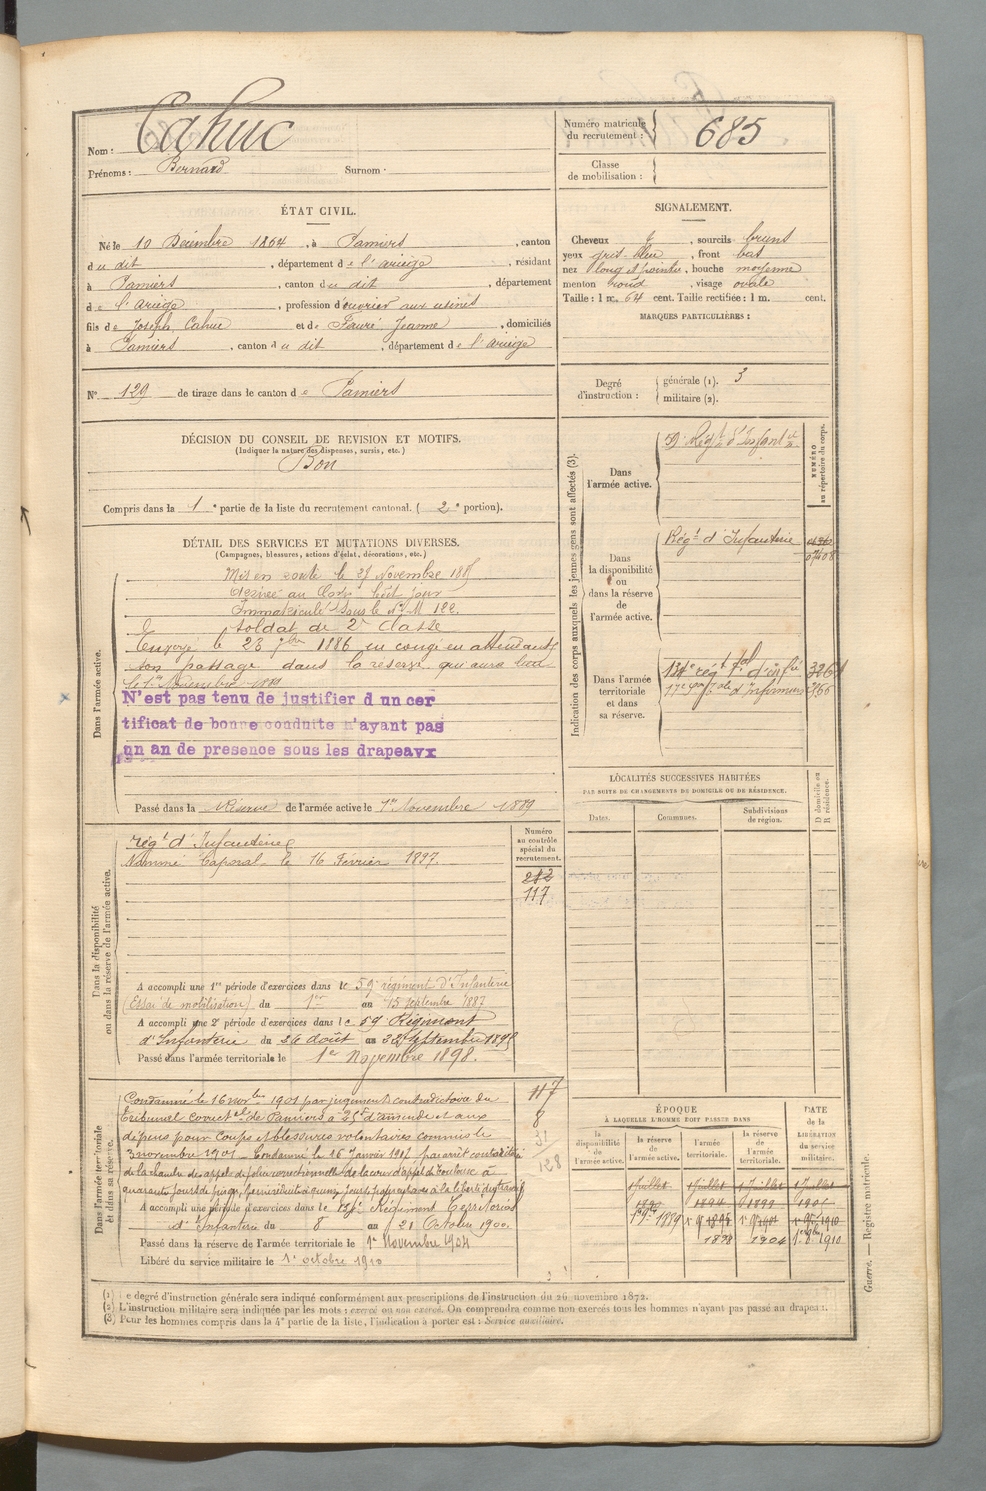 Nom : Cahuc
Prénoms : Bernard Surnom :
Numéro matricule du recrutement : 685
Classe de mobilisation :
ÉTAT CIVIL.
Né le 10 Décembre 1864, à Pamiers, canton
du dit, département de l'ariège, résidant
à Pamiers, canton du dit, département
de l'ariège, profession d'ouvrier aux usines
fils de Joseph Cahuc et de Fauré Jeanne, domiciliés
à Pamiers, canton du dit, département de l'ariège
SIGNALEMENT.
Cheveux, sourcils bruns
yeux gris-bleu, front bas
nez long et pointu, bouche moyenne
menton rond, visage ovale
Taille : 1 m. 64 cent. Taille rectifiée : 1 m. cent.
MARQUES PARTICULIÈRES :
N° 129 de tirage dans le canton de Pamiers
Degré d'instruction : générale (1). 3
militaire (2).
DÉCISION DU CONSEIL DE REVISION ET MOTIFS.
(Indiquer la nature des dispenses, sursis, etc.)
Bon
Compris dans la 1e partie de la liste du recrutement cantonal. (2e portion).
DÉTAIL DES SERVICES ET MUTATIONS DIVERSES.
(Campagnes, blessures, actions d'éclat, décorations, etc.)
Dans l'armée active.
Mis en route le 27 Novembre 188
Arrivé au Corps ledit jour
Immatriculé sous le N°
soldat de 2e classe
Envoyé le 23 7bre 1886 en congé en attendant
son passage dans la réserve qui aura lieu
le 1er Novembre 1889
N'est pas tenu de justifier d un cer
tificat de bonne conduite n'ayant pas
un an de presence sous les drapeavx
Passé dans la Réserve de l'armée active le 1er Novembre 1889
Indication des corps auxquels les jeunes gens sont affectés (3).
NUMÉRO au répertoire du corps.
Dans l'armée active.
59e Régt d'Infanterie
Dans la disponibilité ou dans la réserve de l'armée active.
Régt d'Infanterie
Dans l'armée territoriale et dans sa réserve.
134e régt tal d'infie
17e d'infirmiers
LOCALITÉS SUCCESSIVES HABITÉES
PAR SUITE DE CHANGEMENTS DE DOMICILE OU DE RÉSIDENCE.
Dates. Communes. Subdivisions de région. D domicile ou R résidence.
Dans la disponibilité ou dans la réserve de l'armée active.
Numéro au contrôle spécial du recrutement.
212
117
régt d'Infanterie
Nommé Caporal le 16 Février 1897.
A accompli une 1re période d'exercices dans le 59e régiment d'Infanterie
(Essai de mobilisation) du 1er au 15 septembre 1887
A accompli une 2e période d'exercices dans le 59 Régiment
d'Infanterie du 26 août au Septembre 189
Passé dans l'armée territoriale le 1er Novembre 1898.
Dans l'armée territoriale et dans sa réserve.
117
8
128
Condamné le 16 novbre 1901 par jugement contradictoire du
Tribunal correctel de Pamiers à 25f d'amende et aux
dépens pour Coups et blessures volontaires commis le
3 novembre 1901 - Condamné le 16 Janvier 1902 par arrêt contradictoire
de la chambre des appels de police correctionnelle de la cour d'appel de Toulouse à
quarante jours de prison
A accompli une période d'exercices dans le 134e Régiment Territorial
d'Infanterie du 8 au 21 Octobre 1900.
Passé dans la réserve de l'armée territoriale le 1er Novembre 1904
Libéré du service militaire le 1er octobre 1910
ÉPOQUE
À LAQUELLE L'HOMME DOIT PASSER DANS
la disponibilité de l'armée active. la réserve de l'armée active. l'armée territoriale. la réserve de l'armée territoriale.
DATE de la LIBÉRATION du service militaire.
1 Juillet 1 Juillet 1 Juillet 1 Juillet
1894 1899
1889 1898 1904 1910
(1) Le degré d'instruction générale sera indiqué conformément aux prescriptions de l'instruction du 26 novembre 1872.
(2) L'instruction militaire sera indiquée par les mots : exercé ou non exercé. On comprendra comme non exercés tous les hommes n'ayant pas passé au drapeau.
(3) Pour les hommes compris dans la 4e partie de la liste, l'indication à porter est : Service auxiliaire.
Guerre. — Registre matricule.